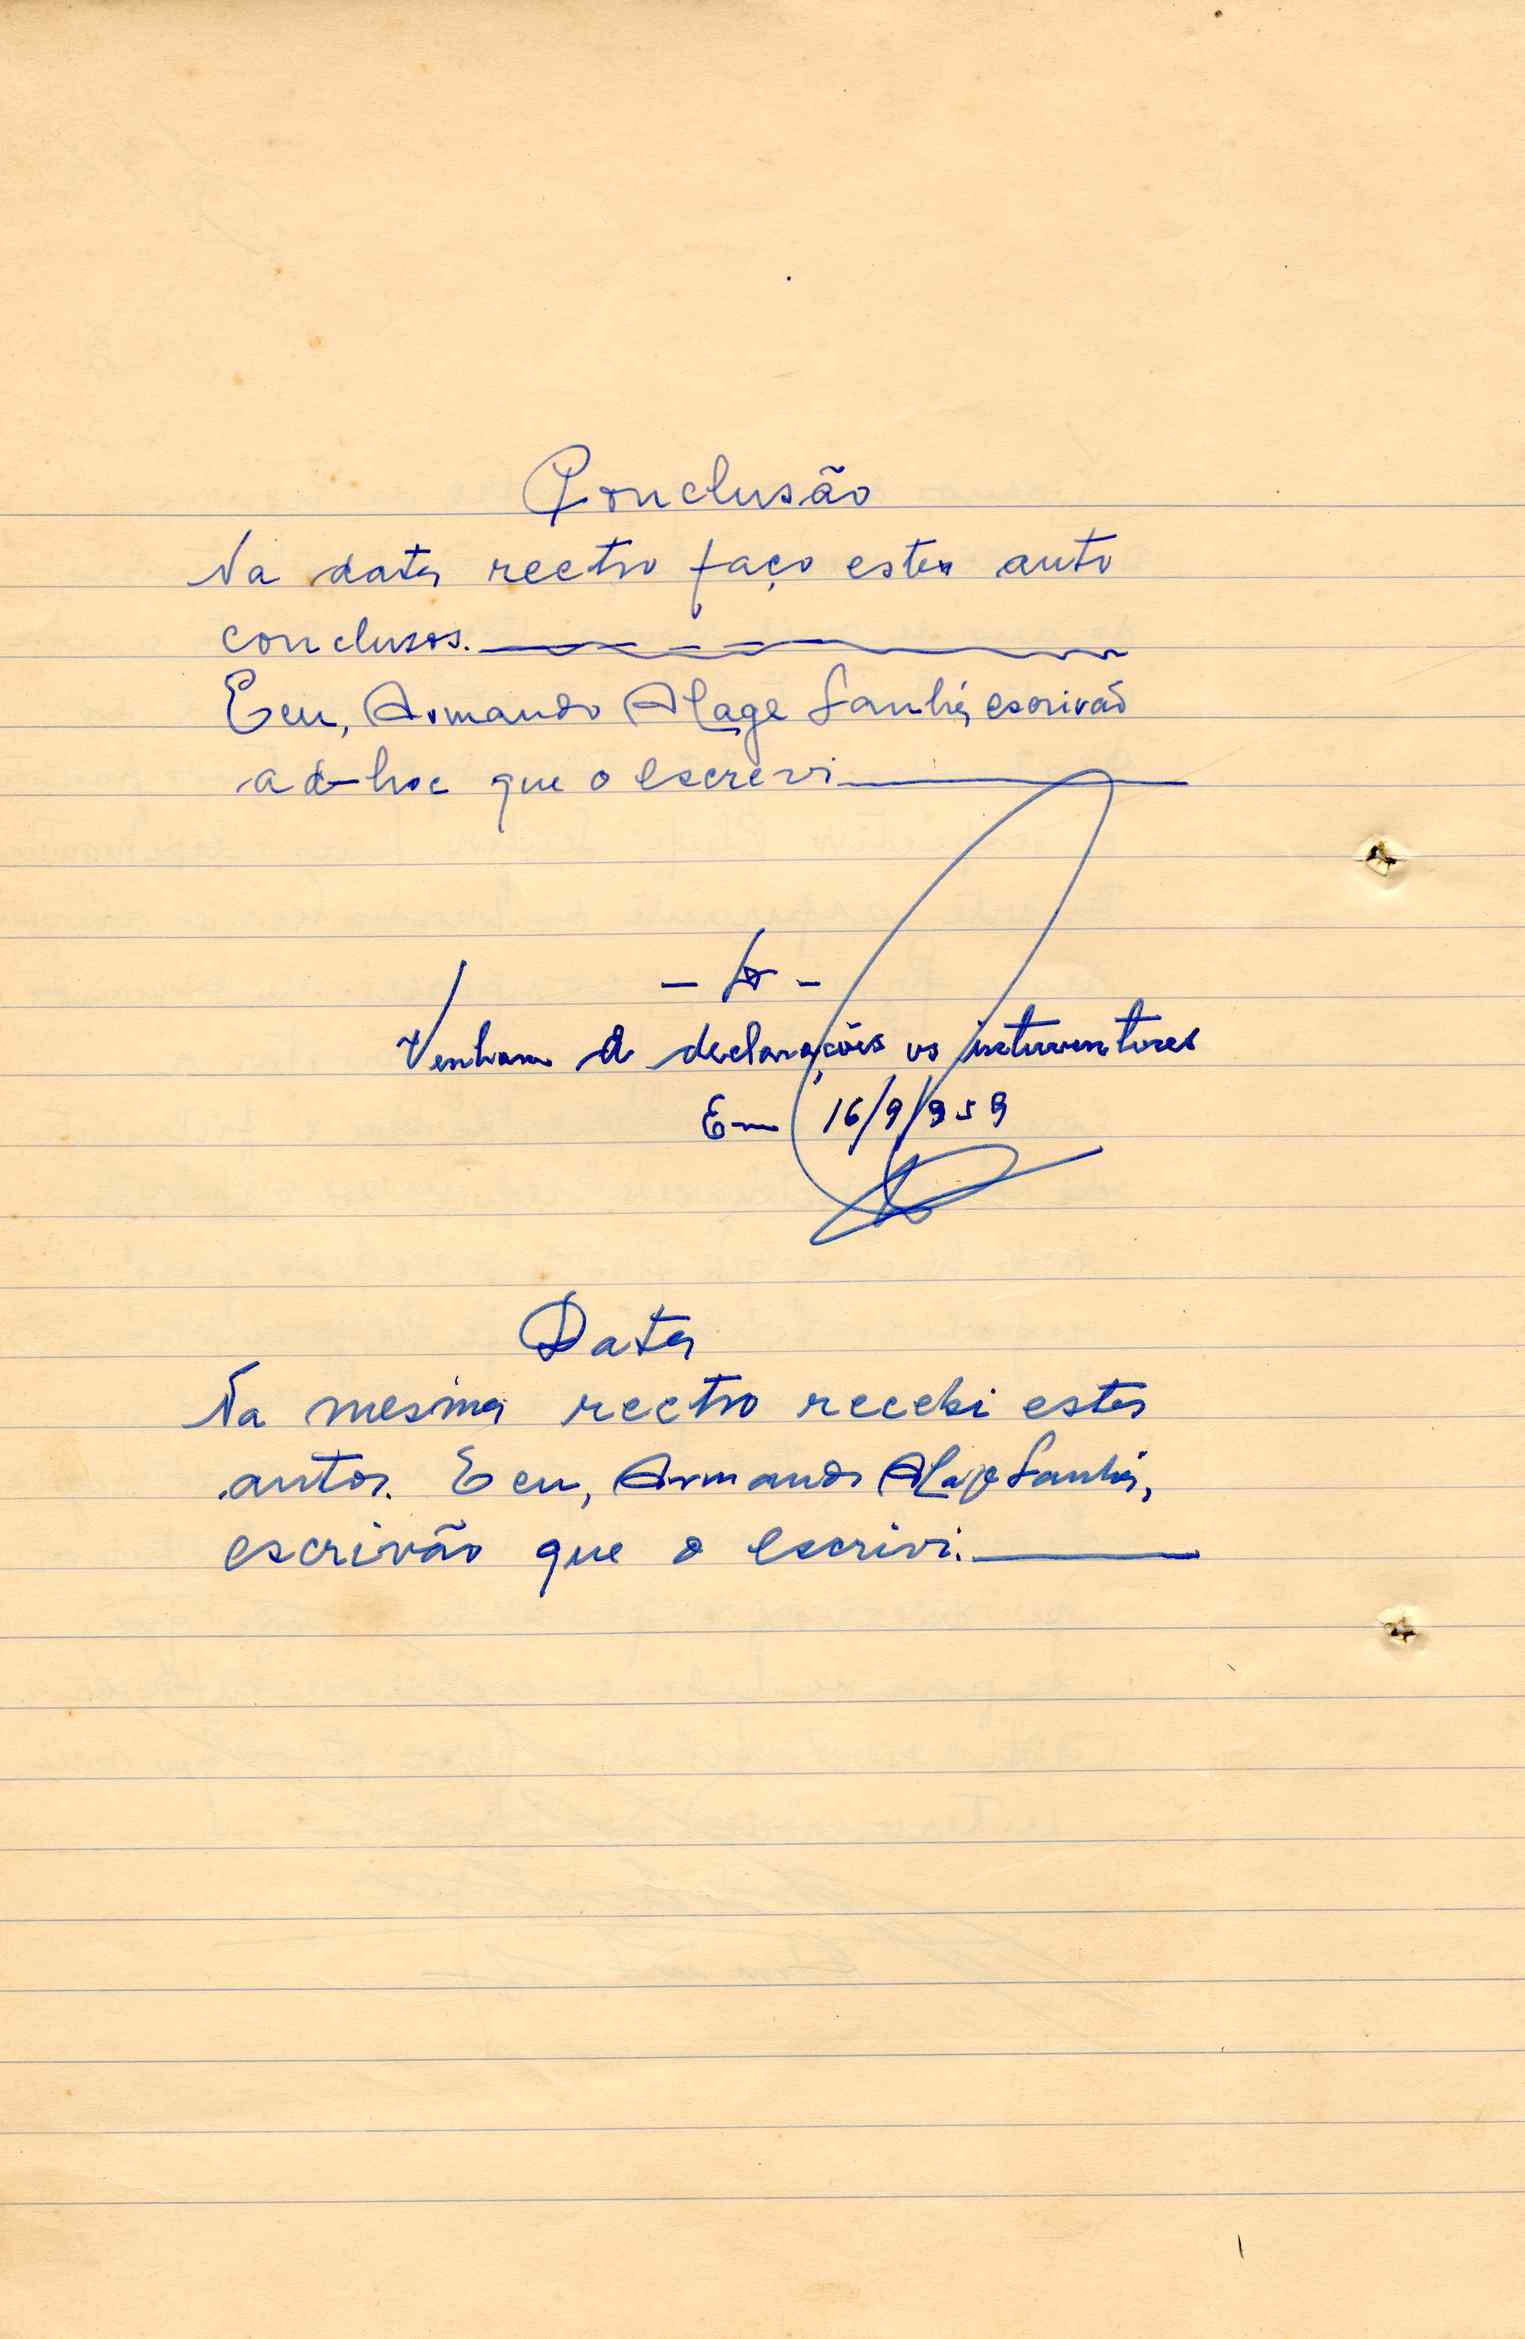 Conclusão
Na data rectro faço estes auto
conclusos.
E eu, Armando Alage Sanhá, escrivão
ad-hoc que o escrevi
Venham a declarações os interventores
Em 16/9/959
Data
Na mesma rectro recebi estes
autos. E eu, Armando Alage Sanhá,
escrivão que o escrivi.